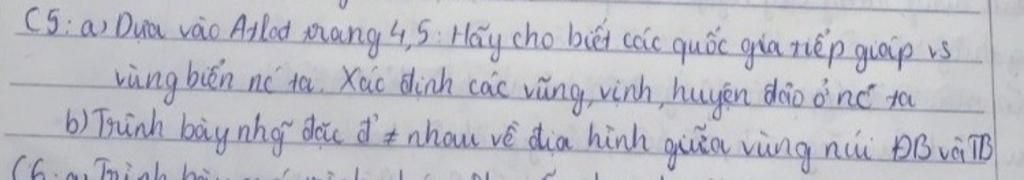 C5: a) Dựa vào Atlat trang 4,5: Hãy cho biết các quốc gia tiếp giáp vs
vùng biển nc ta. Xác định các vũng, vịnh, huyện đảo ở nc ta
b) Trình bày nhg~ đặc đ' ≠ nhau về địa hình giữa vùng núi ĐB và TB
C6: a) Trình